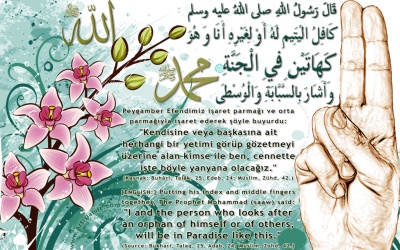 الله
قَالَ رَسُولُ اللهِ صلى الله عليه وسلم
كَافِلُ الْيَتِيمِ لَهُ أَوْ لِغَيْرِهِ أَنَا وَ هُوَ
كَهَاتَيْنِ فِي الْجَنَّةِ
وَ أَشَارَ بِالسَّبَّابَةِ وَ الْوُسْطَى
محمد
Peygamber Efendimiz işaret parmağı ve orta
parmağıyla işaret ederek şöyle buyurdu:
"Kendisine veya başkasına ait
herhangi bir yetimi görüp gözetmeyi
üzerine alan kimse ile ben, cennette
işte böyle yanyana olacağız."
(Kaynak: Buhârî, Talâk, 25; Edeb, 24; Müslim, Zühd, 42.)
(ENGLISH:) Putting his index and middle fingers
together, The Prophet Mohammad (saaw) said:
"I and the person who looks after
an orphan of himself or of others,
will be in Paradise like this"
(Source: Bukhari, Talaq, 25, Adab, 24; Muslim, Zuhd, 42.)